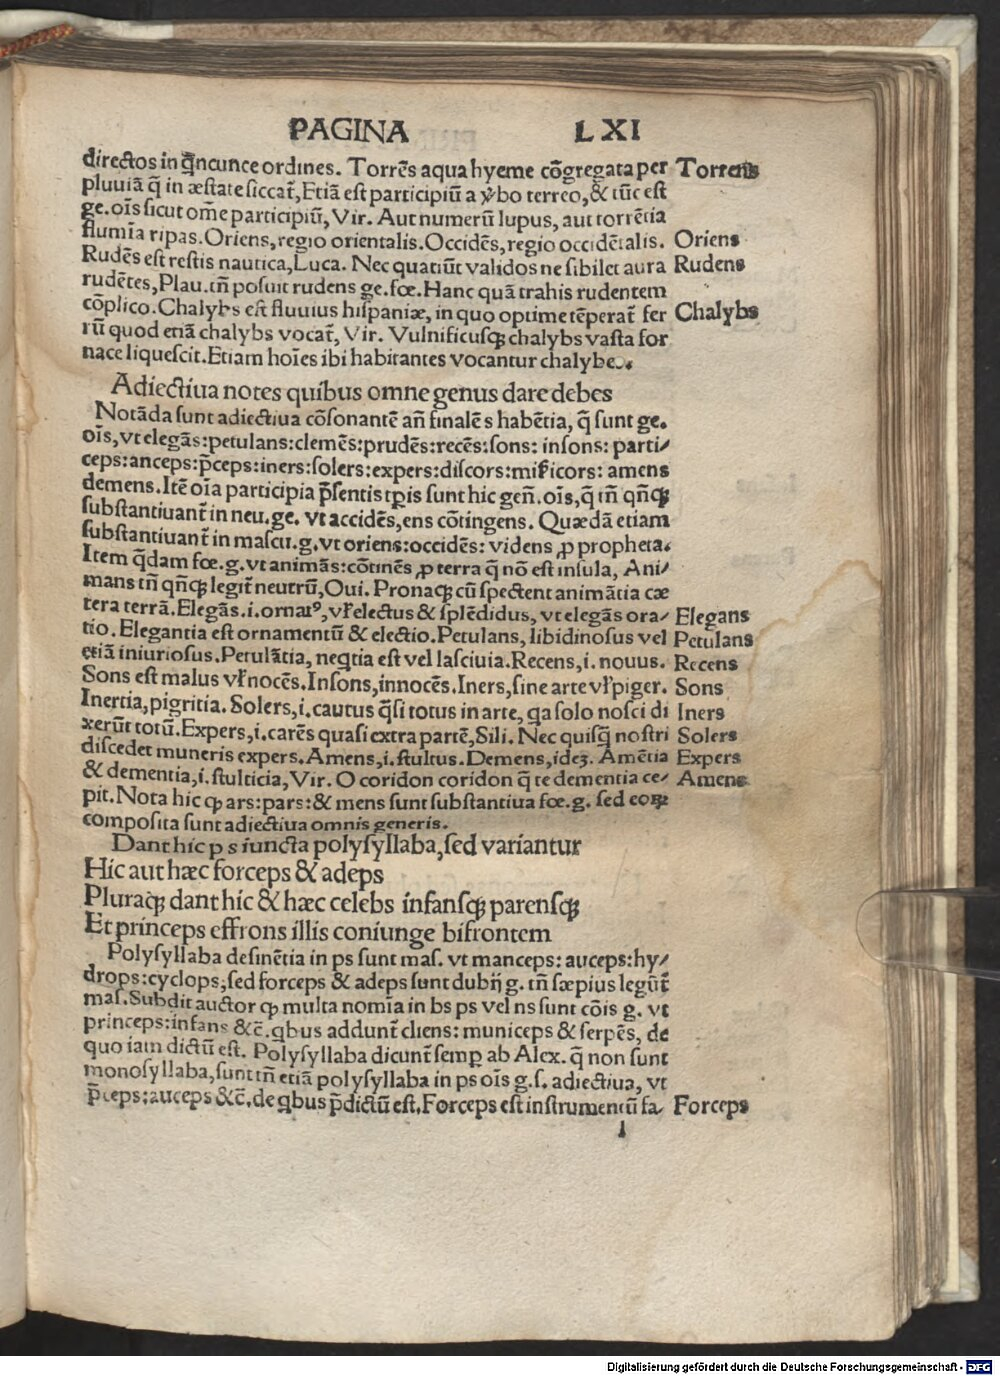 PAGINA LXI
directos in qncunce ordines. Torrēs aqua hyeme cōgregata per Torrens
pluuiā q̄ in æstate siccat̄, Etiā est participiū a v̓bo terreo, & tūc est
ge. oīs sicut om̄e participiū, Vir. Aut numerū lupus, aut torrētia
flumīa ripas. Oriens, regio orientalis. Occidēs, regio occidētalis. Oriens
Rudēs est restis nautica, Luca. Nec quatiūt validos ne sibilet aura Rudens
rudētes, Plau. tn̄ posuit rudens ge. fœ. Hanc quā trahis rudentem
cōplico. Chalybs est fluuius hispaniæ, in quo optime tēperat̄ fer Chalybs
rū quod etiā chalybs vocat̄, Vir. Vulnificusq; chalybs vasta for
nace liquescit. Etiam hoīes ibi habitantes vocantur chalybes.
Adiectiua notes quibus omne genus dare debes
Notāda sunt adiectiua cōsonantē an̄ finalē s habētia, q̄ sunt ge.
oīs, vt elegās: petulans: clemēs: prudēs: recēs: sons: insons: parti⸗
ceps: anceps: p̄ceps: iners: solers: expers: discors: mis̄icors: amens
demens. Itē oīa participia p̄sentis tꝑis sunt hic gen̄. oīs, q̄ tn̄ qn̄q;
substantiuant̄ in neu. ge. vt accidēs, ens cōtingens. Quædā etiam
substantiuant̄ in mascu. g. vt oriens: occidēs: videns ꝓ propheta.
Item q̄dam fœ. g. vt animās: cōtinēs ꝓ terra q̄ nō est insula, Ani⸗
mans tn̄ qn̄q; legit̄ neutrū, Oui. Pronaq; cū spectent animātia cæ
tera terrā. Elegās. i. ornatꝰ, vł electus & splēdidus, vt elegās ora⸗ Elegans
tio. Elegantia est ornamentū & electio. Petulans, libidinosus vel Petulans
etiā iniuriosus. Petulātia, neqtia est vel lasciuia. Recens, i. nouus. Recens
Sons est malus vł nocēs. Insons, innocēs. Iners, sine arte vł piger. Sons
Inertia, pigritia. Solers, i. cautus q̄si totus in arte, qa solo nosci di Iners
xerūt totū. Expers, i. carēs quasi extra partē, Sili. Nec quisq̄ nostri Solers
discedet muneris expers. Amens, i. stultus. Demens, ideꝫ. Amētia Expers
& dementia, i. stulticia, Vir. O coridon coridon q̄ te dementia ce⸗ Amens
pit. Nota hic ꝙ ars: pars: & mens sunt substantiua fœ. g. sed eoꝝ
composita sunt adiectiua omnis generis.
Dant hic p s iuncta polysyllaba, sed variantur
Hic aut hæc forceps & adeps
Pluraq; dant hic & hæc celebs infansq; parensq;
Et princeps effrons illis coniunge bifrontem
Polysyllaba desinētia in ps sunt mas. vt manceps: auceps: hy⸗
drops: cyclops, sed forceps & adeps sunt dubij g. tn̄ sæpius legūt̄
mas. Subdit auctor ꝙ multa nomīa in bs ps vel ns sunt cōis g. vt
princeps: infans &c̄. qbus addunt̄ cliens: municeps & serpēs, de
quo iam dictū est. Polysyllaba dicunt̄ semꝑ ab Alex. q̄ non sunt
monosyllaba, sunt tn̄ etiā polysyllaba in ps oīs g. s. adiectiua, vt
p̄ceps: auceps &c̄. de qbus p̄dictū est. Forceps est instrumentū fa⸗ Forceps
l
Digitalisierung gefördert durch die Deutsche Forschungsgemeinschaft - DFG